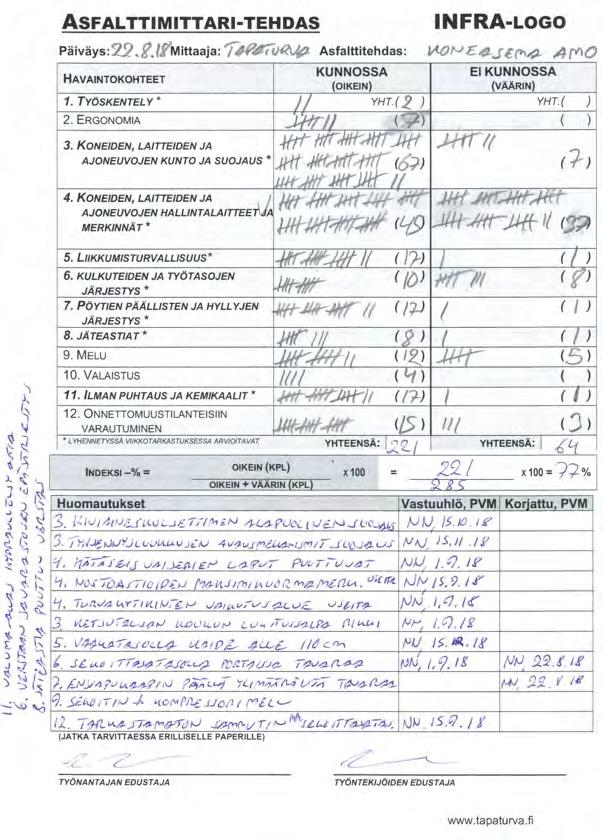 ASFALTTIMITTARI-TEHDAS INFRA-LOGO
Päiväys: 22.8.18 Mittaaja: TAPATURVA Asfalttitehdas: KONEASEMA AMO
HAVAINTOKOHTEET KUNNOSSA (OIKEIN) EI KUNNOSSA (VÄÄRIN)
1. TYÖSKENTELY * YHT.( 2 ) YHT.( )
2. ERGONOMIA ( 7 ) ( )
3. KONEIDEN, LAITTEIDEN JA
AJONEUVOJEN KUNTO JA SUOJAUS * (67) ( 7 )
4. KONEIDEN, LAITTEIDEN JA
AJONEUVOJEN HALLINTALAITTEET JA
MERKINNÄT * (49) (37)
5. LIIKKUMISTURVALLISUUS * (17) ( 1 )
6. KULKUTEIDEN JA TYÖTASOJEN
JÄRJESTYS * (10) ( 8 )
7. PÖYTIEN PÄÄLLISTEN JA HYLLYJEN
JÄRJESTYS * (17) ( 1 )
8. JÄTEASTIAT * ( 8 ) ( 1 )
9. MELU (12) ( 5 )
10. VALAISTUS ( 4 ) ( )
11. ILMAN PUHTAUS JA KEMIKAALIT * (17) ( 1 )
12. ONNETTOMUUSTILANTEISIIN
VARAUTUMINEN (15) ( 3 )
* LYHENNETYSSÄ VIIKKOTARKASTUKSESSA ARVIOITAVAT YHTEENSÄ: 221 YHTEENSÄ: 64
INDEKSI –% = OIKEIN (KPL) x 100 = 221 x 100 = 77 %
OIKEIN + VÄÄRIN (KPL) 285
Huomautukset Vastuuhlö, PVM Korjattu, PVM
3. KIVIAINESKULJETTIMEN ALAPUOLINEN SUOJAUS NN, 15.10.18
3. AVAUSMEKANISMIT SUOJAUS NN, 15.11.18
4. HÄTÄSEIS VAIJERIEN LAPUT PUUTTUVAT NN, 1.9.18
4. NOSTOASTIOIDEN MAKSIMIKUORMAMERK. USEITA NN 15.9.18
4. TURVAKYTKINTEN VAIKUTUSALUE USEITA NN, 1.9.18
3 KETJUTALJAN KOUKUN LUKITUSSALPA RIKKI NN, 1.9.18
5. VAAKATASOLLA KAIDE ALLE 110 cm NN 15. .18
6. SEKOITTAJATASOLLA PORTAISSA TAVARAA NN, 1.9.18 NN, 22.8.18
7. PÄÄLLÄ YLIMÄÄRÄISTÄ TAVARAA NN, 22.8.18
9. SEKOITIN + KOMPRESSORI MELU
12. TARKASTAMATON SAMMUTIN SEKOITTAJATAS. NN 15.9.18
(JATKA TARVITTAESSA ERILLISELLE PAPERILLE)
11. VALUMA-ALLAS HYDRAULIÖLJYASTIA
6. VERSTAAN JA VARASTOJEN EPÄJÄRJESTYS
8. JÄTEASTIA PUUTTUU VERSTAS
TYÖNANTAJAN EDUSTAJA TYÖNTEKIJÖIDEN EDUSTAJA
www.tapaturva.fi